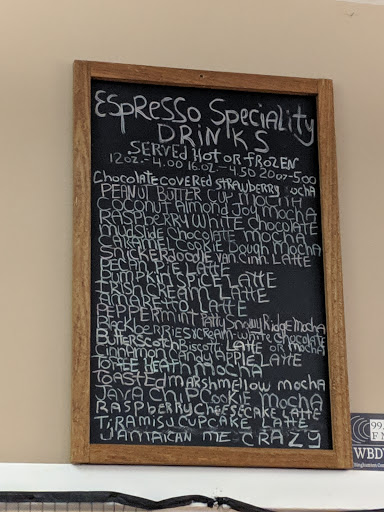 Espresso Speciality
DRINKS
SERVEd HOT OR FROZEN
12oz.-4.00 16oz.-4.50 20oz-5.00
Chocolate covered strawberry mocha
PEANUT BUTTER CUP MOCHA
COCONUT Almond Joy mocha
RASPBERRY WHITE Chocolate
mudslide Chocolate mocha
CARAMEL COOKIE Dough MOCHA
Snickerdoodle Van Cinn LATTE
PECAN PIE LATTE
PUMPKIN SPICE LATTE
IRISH CREAM LATTE
AMARETTO LATTE
PEPPERmint Patty Snowy Ridge mocha
BlackbeRRIES & CREAM White Chocolate
BUTTERSCOTCH Biscotti LATTE or mocha
Cinnamon CANDY APPLE LATTE
TOFFEE HEATH mocha
TOASTEd marshmellow mocha
JAVA CHIP COOKIE MOCHA
RASPBERRY CHEESECAKE LATTE
TiRAMISU CUPCAKE LATTE
JAMAICAN ME CRAZY
99.
FM
WBD